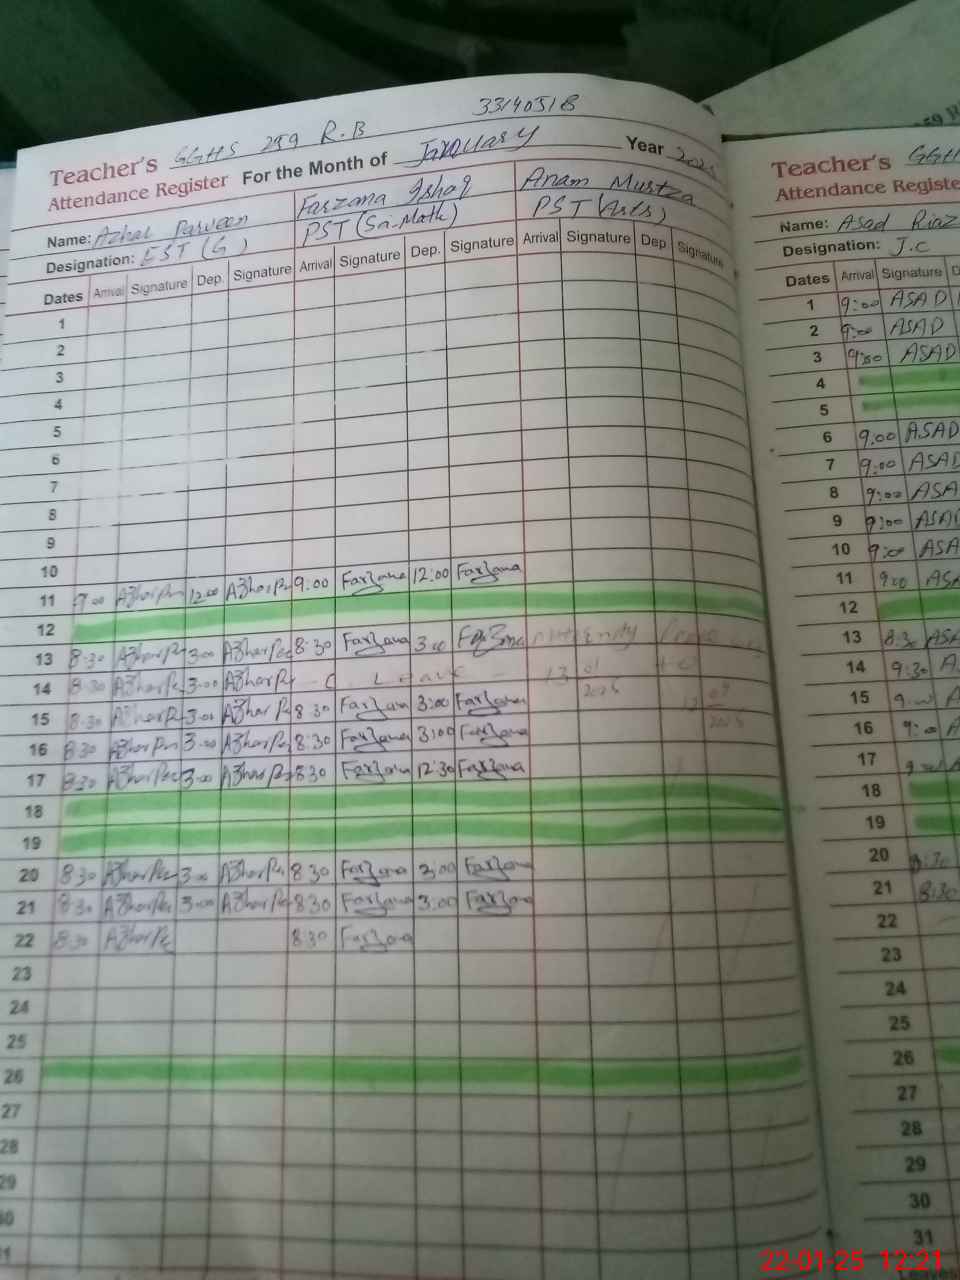 33140518
Teacher's GGHS 259 R.B
Attendance Register For the Month of January Year 2025
Name: Azhar Parveen Farzana Ishaq Anam Mustza
Designation: EST (G) PST (Sci. Math) PST (Arts)
Dates Arrival Signature Dep. Signature Arrival Signature Dep. Signature Arrival Signature Dep. Signature
1
2
3
4
5
6
7
8
9
10
11 9:00 12:00 9:00 Farzana 12:00 Farzana
12
13 8:30 3:00 8:30 Farzana 3:00 Farzana
14 8:30 3:00 C. Leave 13 01 2025 to
15 8:30 3:00 8:30 Farzana 3:00 Farzana 2025
16 8:30 3:00 8:30 Farzana 3:00 Farzana
17 8:30 3:00 8:30 Farzana 12:30 Farzana
18
19
20 8:30 3:00 8:30 Farzana 3:00 Farzana
21 8:30 3:00 8:30 Farzana 3:00 Farzana
22 8:30 8:30 Farzana
23
24
25
26
27
28
29
Teacher's GGH
Attendance Registe
Name: Asad Riaz
Designation: J.C
Dates Arrival Signature D
1 9:00 ASAD
2 9:00 ASAD
3 9:00 ASAD
4
5
6 9:00 ASAD
7 9:00 ASAD
8 9:00 ASA
9 9:00 ASAD
10 9:00 ASA
11 9:00 ASA
12
13 8:30 ASA
14 9:30 A
15 9:00 A
16 9:00 A
17 9:00 A
18
19
20 8:30
21 8:30
22
23
24
25
26
27
28
29
30
31
22-01-25 12:21